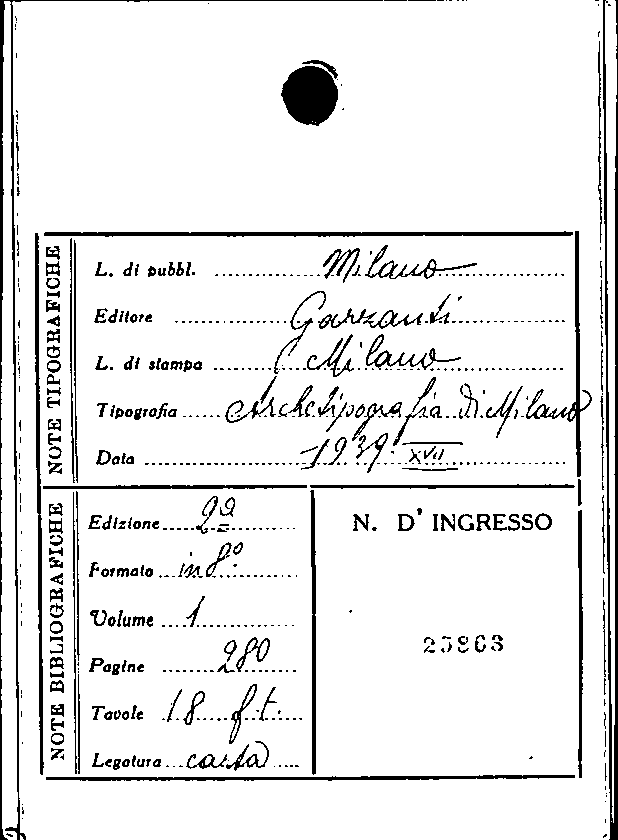 NOTE TIPOGRAFICHE
L. di pubbl. Milano
Editore Garzanti
L. di stampa Milano
Tipografia Archetipografia di Milano
Data 1939. XVII
NOTE BIBLIOGRAFICHE
Edizione 2ª
Formato in 8º
Volume 1
Pagine 280
Tavole 18 f.t.
Legatura carta
N. D' INGRESSO
25863